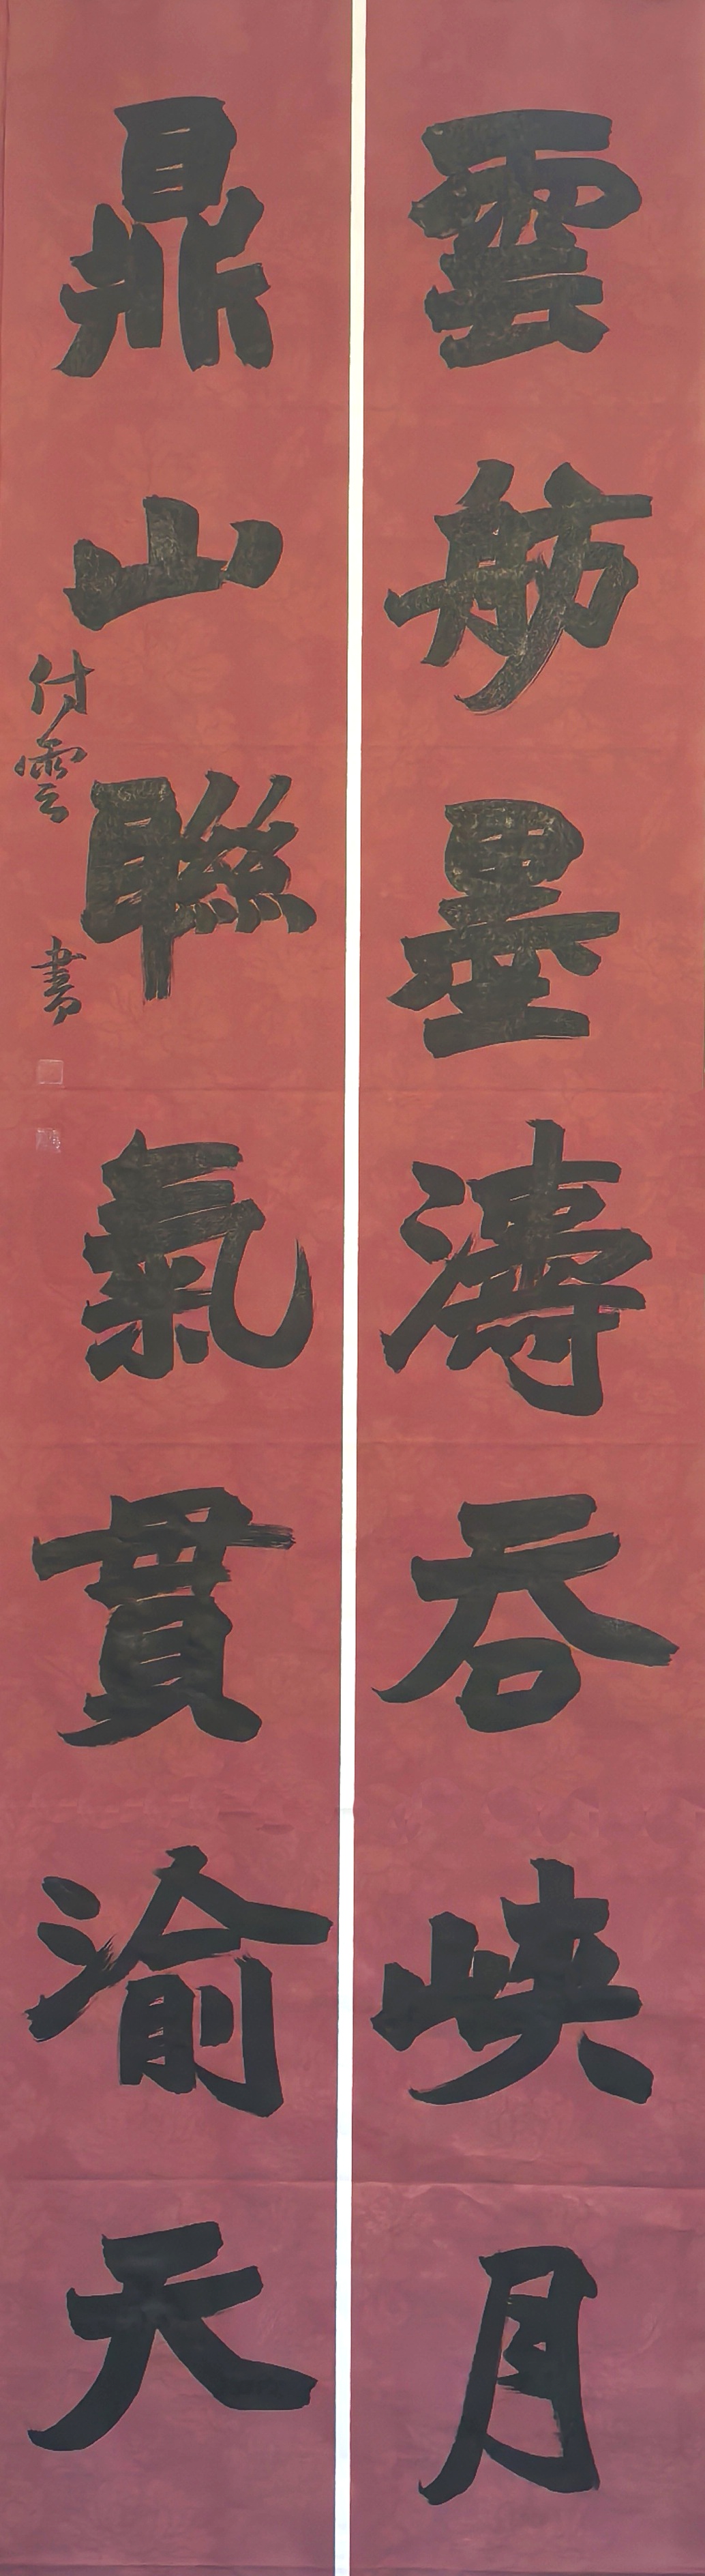 雲舫墨濤吞峽月
鼎山聯氣貫渝天
付雲書